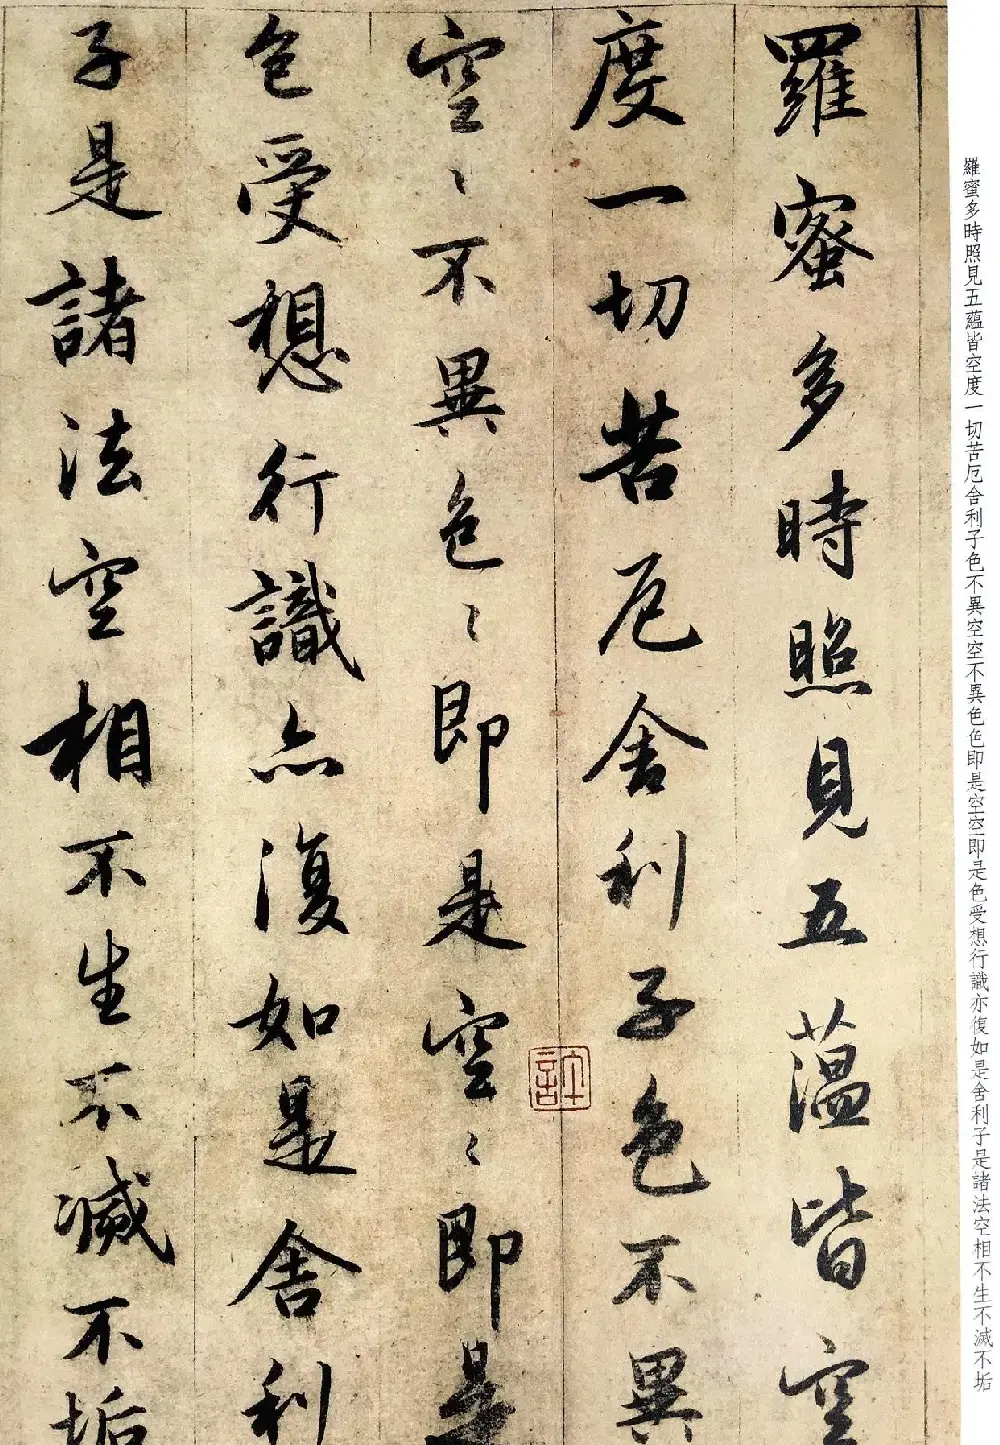 羅蜜多時照見五蕴皆空
度一切苦厄舍利子色不異
空〻不異色〻即是空〻即是
色受想行識亦復如是舍利
子是諸法空相不生不滅不垢
羅蜜多時照見五蘊皆空度一切苦厄舍利子色不異空空不異色色即是空空即是色受想行識亦復如是舍利子是諸法空相不生不滅不垢